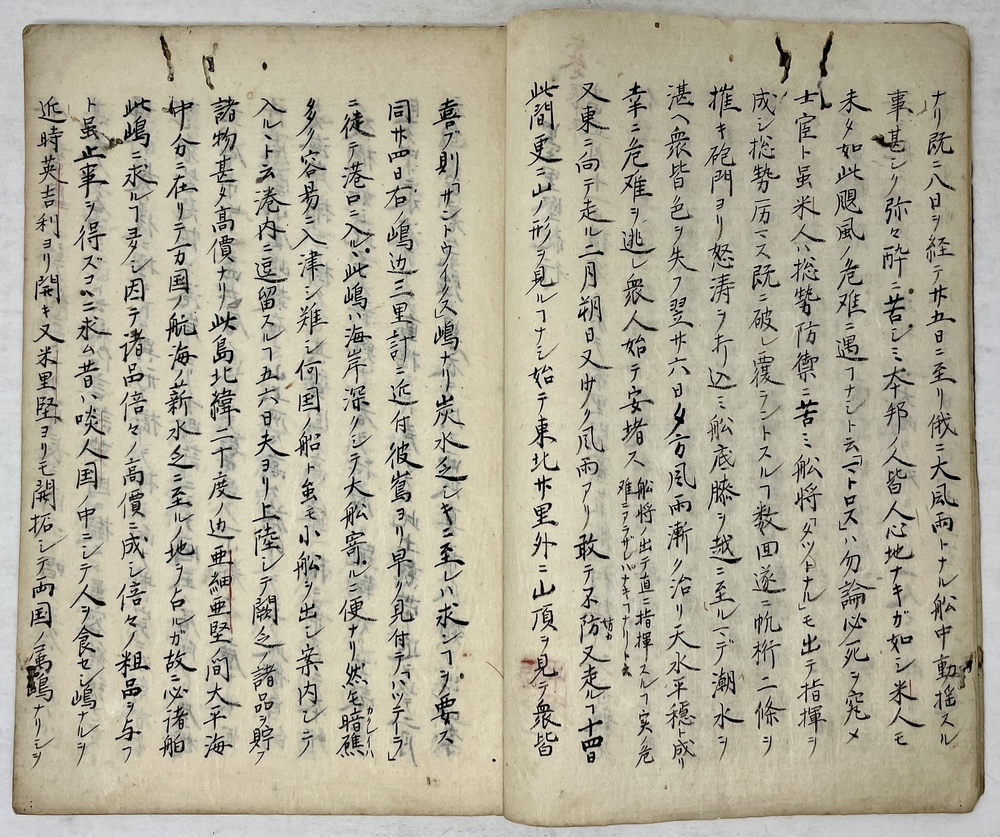 ナリ既ニ八日ヲ経テ廿五日ニ至リ俄ニ大風雨トナル船中動揺スル
事甚シク弥々酔ニ苦シミ本邦ノ人皆人心地ナキガ如シ米人モ
未タ如此颶風ノ危难ニ遇フヿナシト云「マトロス」ハ勿論必死ヲ究メ
士官ト虽米人ハ惣勢防禦ニ苦ミ舩将「タットナル」モ出テ指揮ヲ
成シ惣勢历マス既ニ破レ覆ラントスルヿ数回遂ニ帆桁二條ヲ
摧キ砲門ヨリ怒涛ヲ打込ミ舩底膝ヲ越ニ至ルマデ潮水ヲ
湛ヘ衆皆色ヲ失フ翌廿六日夕方風雨漸ク治リ天水平穏ト成リ
幸ニ危难ヲ逃レ衆人始テ安堵ス舩将ノ出テ直ニ指揮スルヿ実危难ニアラザレバナキヿナリト云
又東ニ向テ走ル二月朔日又少ク風雨アリ敢テ不防又走ルヿ十四日
此間更ニ山ノ形ヲ見ルヿナシ始テ東北廿里外ニ山頂ヲ見テ衆皆
喜ブ則「サントウイス」嶋ナリ炭水乏シキニ至レハ求ンヿヲ要ス
同廿四日右ノ嶋辺三里計ニ近付彼嶌ヨリ早ク見付テ「ハッテーラ」
ニ徒テ港口ニ入ル此嶋ハ海岸深クシテ大舩寄ルニ便ナリ然モ暗礁
多ク容易ニ入津シ难シ何国ノ船ト虽モ小船ヲ出シ案内シテ
入ルヽト云港内ニ逗留スルヿ五六日夫ヨリ上陸シテ闕乏ノ諸品ヲ貯フ
諸物甚タ高價ナリ此島北緯二十度ノ辺亜細亜堅ノ間大平海
中分ニ在リテ万国ノ航海ノ薪水乏ニ至ルノ地ヲ占ルガ故ニ必諸舶
此嶋ニ求ルヿヨクシ因テ諸品倍々ノ高價ニ成シ倍々ノ粗品ヲ与フ
ト虽止事ヲ得ズコヽニ求ム昔ハ啖人国ノ中ニシテ人ヲ食セシ嶋ナルヲ
近時英吉利ヨリ開キ又米里堅ヨリモ開拓シテ両国ノ属嶋ナリシヲ